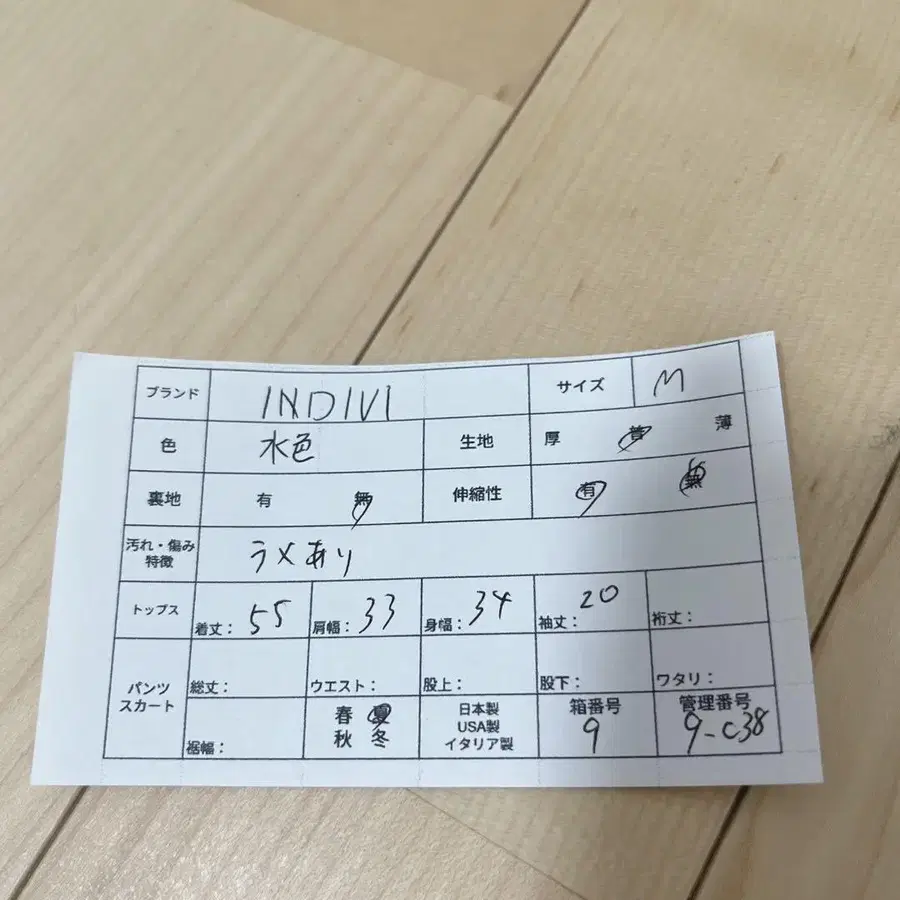 ブランド INDIVI サイズ M
色 水色 生地 厚 普 薄
裏地 有 無 伸縮性 有 無
汚れ・傷み
特徴 ラメあり
トップス 着丈: 55 肩幅: 33 身幅: 34 袖丈: 20 裄丈:
パンツ
スカート 総丈: ウエスト: 股上: 股下: ワタリ:
裾幅: 春 夏
秋 冬
日本製
USA製
イタリア製
箱番号
9
管理番号
9-C38